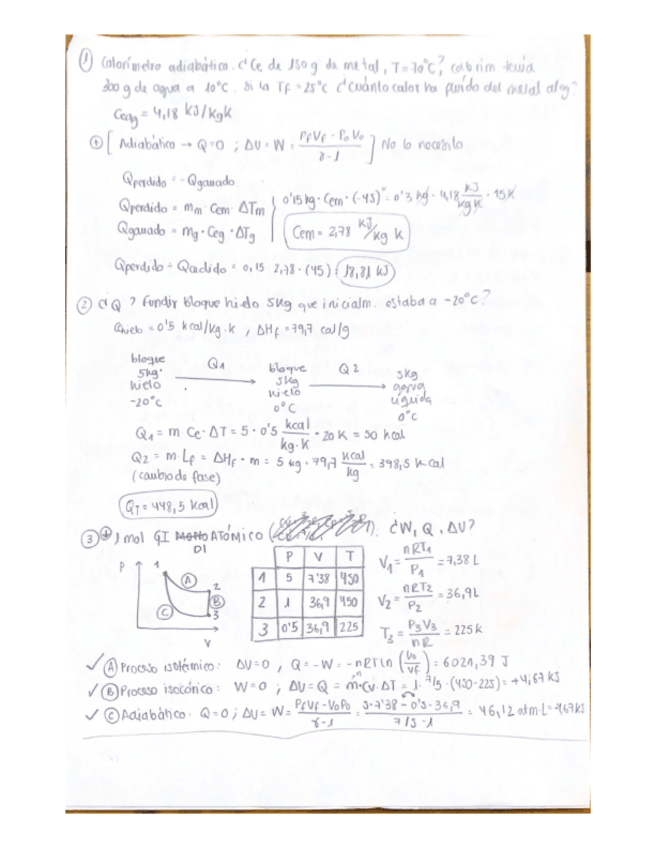 ① Calorímetro adiabático. ¿Ce de 150g de metal, T=70°C?, cal. prim tenía
300g de agua a 10°C. Si la Tf=25°C ¿Cuánto calor ha perdido del metal al ag?
Ceag = 4,18 kJ/kgK
[Adiabático → Q=0 ; ΔU = W = PfVf - PoVo / γ-1] No lo necesito
Qperdido = -Qganado
Qperdido = mm · Cem · ΔTm
Qganado = mg · Ceg · ΔTg
0'15 kg · Cem · (-45) = 0'3 kg · 4,18 kJ/kg K · 15K
Cem = 2,78 kJ/kg K
Qperdido = Qcedido = 0,15 2,78 · (45) = 18,81 kJ
② ¿Q? Fundir bloque hielo 5kg que inicialm. estaba a -20°C?
Chielo = 0'5 kcal/kg·k , ΔHf = 79,7 cal/g
bloque 5kg hielo -20°C
Q1
bloque 5kg hielo 0°C
Q2
5kg agua líquida 0°C
Q1 = m Ce · ΔT = 5 · 0'5 kcal/kg·K · 20 K = 50 kcal
Q2 = m · Lf = ΔHf · m = 5 kg · 79,7 kcal/kg = 398,5 kcal
(cambio de fase)
QT = 448,5 kcal
③ 1 mol GI MONOATÓMICO DI ¿W, Q, ΔU?
P
1
A
2
B
C
3
V
P V T
1 5 7'38 450
2 1 36,9 450
3 0'5 36,9 225
V1 = nRT1 / P1 = 7,38 L
V2 = nRT2 / P2 = 36,9L
T3 = P3V3 / nR = 225k
✓ Ⓐ Proceso isotérmico: ΔU=0 , Q = -W = -nRTln (Vo/Vf) = 6021,39 J
✓ Ⓑ Proceso isocórico: W=0 ; ΔU = Q = m·Cv·ΔT = 1 · 7/5 · (450-225) = +4,67 kJ
✓ Ⓒ Adiabático: Q=0 ; ΔU = W = PfVf - VoPo / γ-1 = 5·7'38 - 0'5·36,9 / 7/5 -1 = 46,12 atm·L = 4,67 kJ